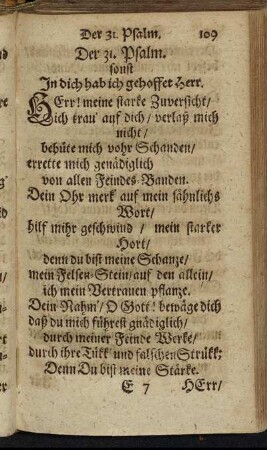 Der 31. Psalm. 109
Der 31. Psalm.
sonst
In dich hab ich gehoffet Herr.
HErr! meine starke Zuversicht/
Jich trau' auf dich/ verlaß mich
nicht/
behüte mich vohr Schanden/
errette mich genädiglich
von allen Feindes-Banden.
Dein Ohr merk auf mein sähnlichs
Wort/
hilf mihr geschwind / mein starker
Hort/
denn du bist meine Schanze/
mein Felsen-Stein/ auf den allein/
ich mein Vertrauen pflanze.
Dein Nahm'/ O Gott! bewäge dich
daß du mich führest gnädiglich/
durch meiner Feinde Werke/
durch ihre Tükk und falschen Strükk:
Denn Du bist meine Stärke.
E 7 HErr/